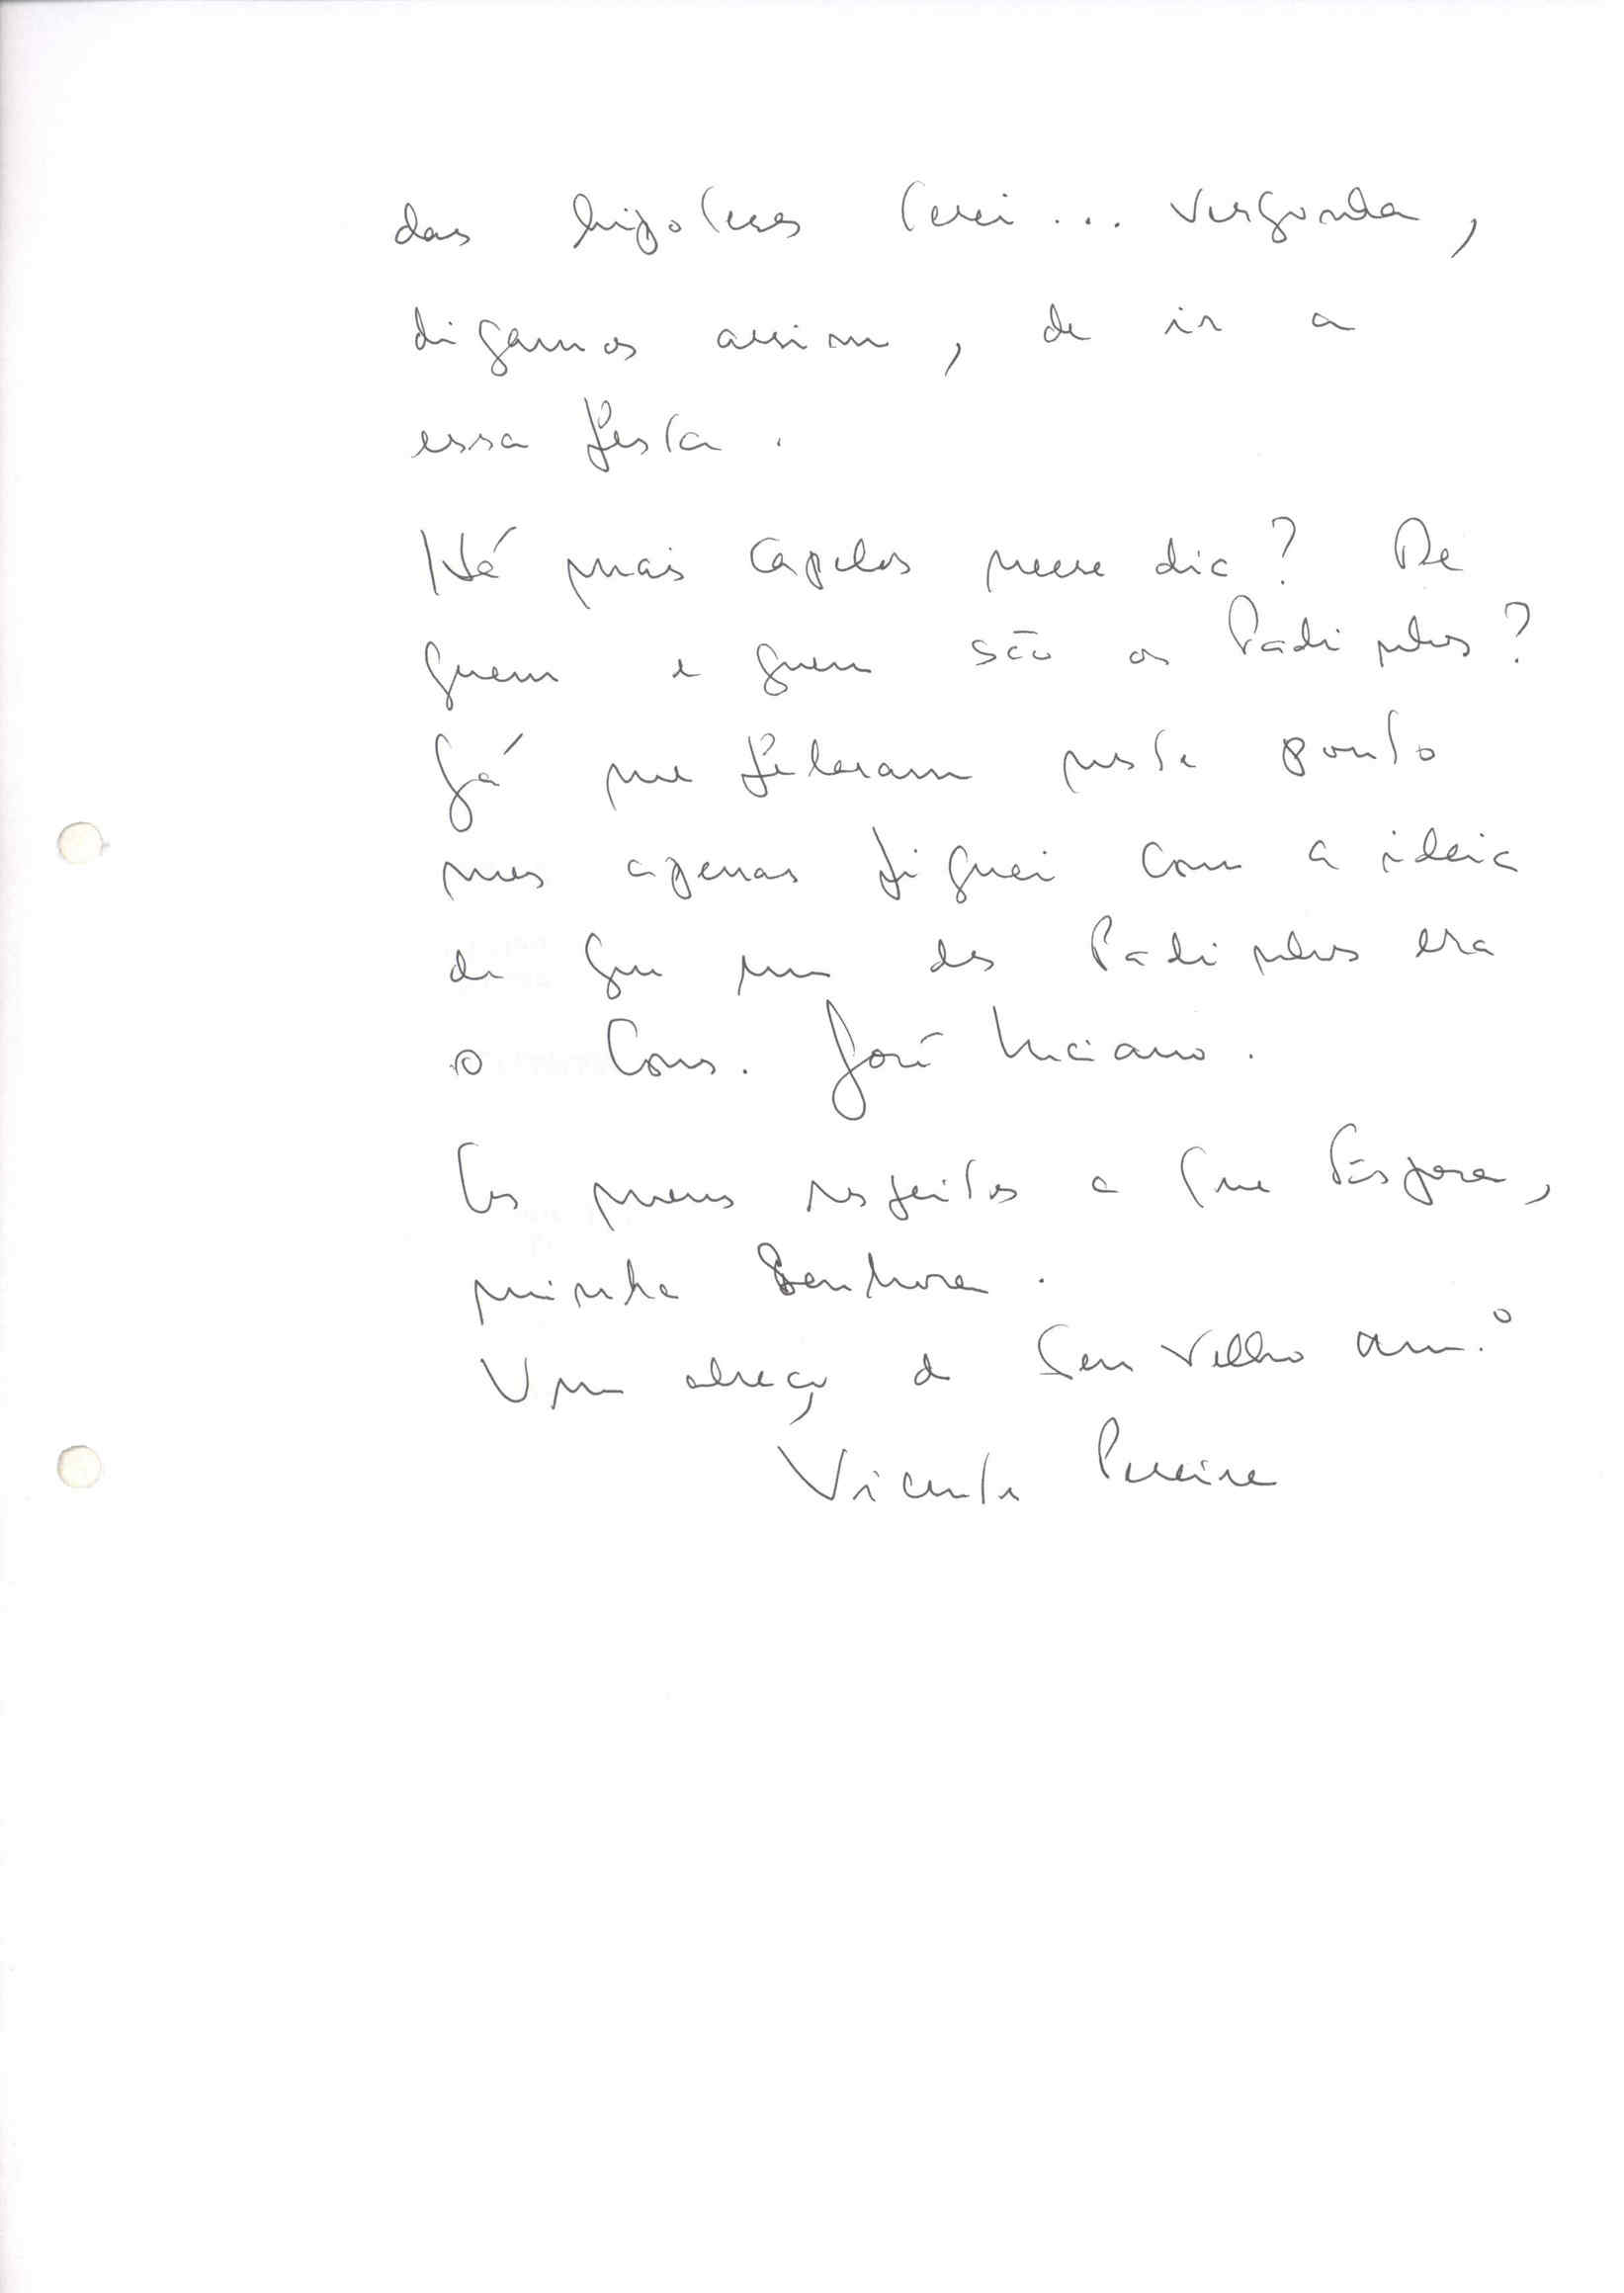 das hipoteses terei... vergonha,
digamos assim, de ir a
essa festa.
Há mais capelos nesse dia? De
quem e quem são os Padrinhos?
Já me falaram neste ponto
mas apenas fiquei com a ideia
de que um dos Padrinhos era
o Cons. José Luciano.
Os meus respeitos a Sua Esposa,
minha Senhora.
Um abraço do Seu velho am.º
Vicente Pereira